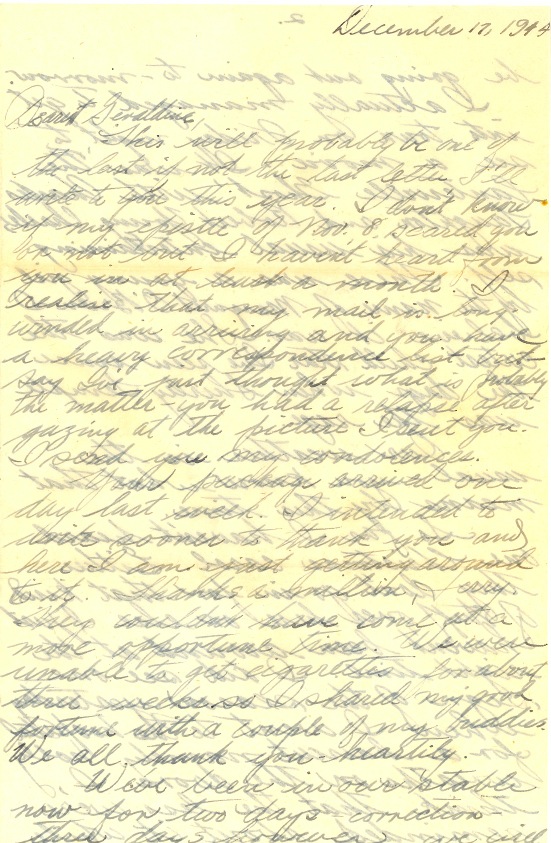 December 17, 1944
Dearest Geraldine,
This will probably be one of
the last if not the last letter I'll
write to you this year. I don't know
if my epistle of Nov. 8 scared you
or not but I haven't heard from
you in at least a month. I
realize that my mail is long-
winded in arriving and you have
a heavy correspondence list but
say I've just thought what is probably
the matter - you had a relapse after
gazing at the picture I sent you.
I send you my condolences.
Your package arrived one
day last week. I intended to
write sooner to thank you and
here I am just getting around
to it. Thanks a million, Jerry.
They couldn't have come at a
more opportune time. We were
unable to get cigarettes for about
three weeks so I shared my good
fortune with a couple of my buddies.
We all thank you heartily.
We've been in our stable
now for two days - correction -
three days however we will